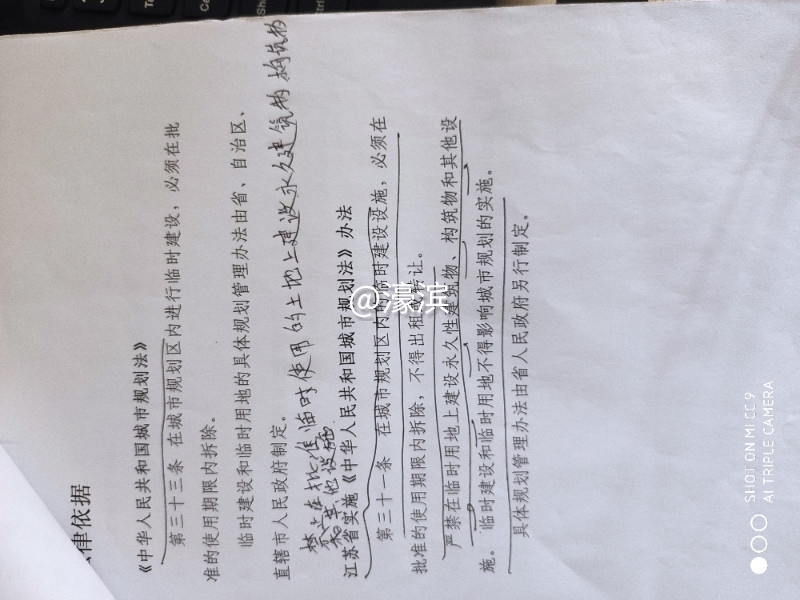 律依据
《中华人民共和国城市规划法》
第三十三条 在城市规划区内进行临时建设，必须在批
准的使用期限内拆除。
临时建设和临时用地的具体规划管理办法由省、自治区、
直辖市人民政府制定。
禁止在批准临时使用的土地上建设永久建筑物 构筑物
和其他设施
江苏省实施《中华人民共和国城市规划法》办法
第三十一条 在城市规划区内的临时建设设施，必须在
批准的使用期限内拆除，不得出租或转让。
严禁在临时用地上建设永久性建筑物、构筑物和其他设
施。临时建设和临时用地不得影响城市规划的实施。
具体规划管理办法由省人民政府另行制定。
@濠滨
SHOT ON MI CC 9
AI TRIPLE CAMERA